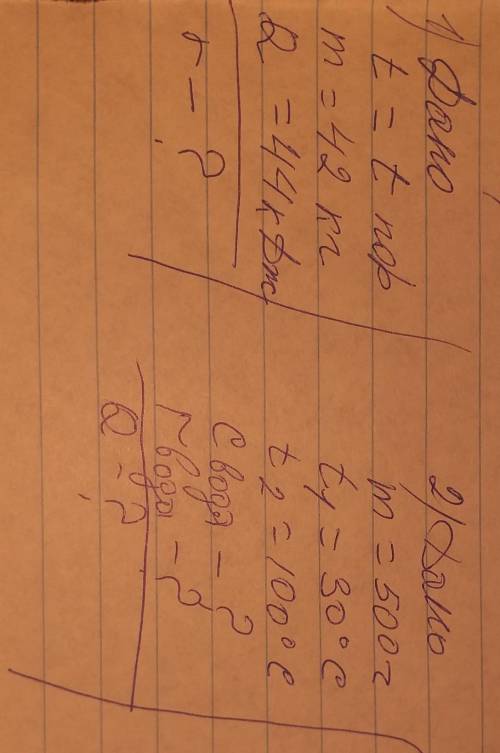 1) Дано
t = t пар
m = 42 кг
Q = 44 кДж
r - ?
2) Дано
m = 500г
t1 = 30°C
t2 = 100°C
c вода - ?
r вода - ?
Q - ?